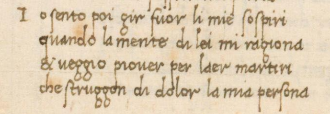 I o sento poi gir fuor li mie sospiri
quando la mente di lei mi ragiona
& veggio piover per laer martiri
che struggon di dolor la mia persona